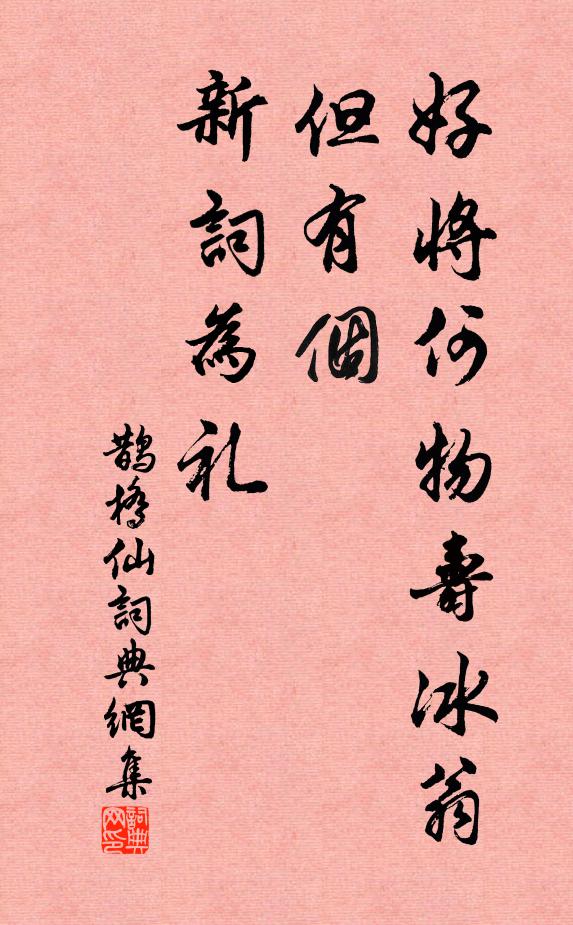 好將何物壽冰翁
但有個
新詞為礼
鵲橋仙詞典網集
詞典网印